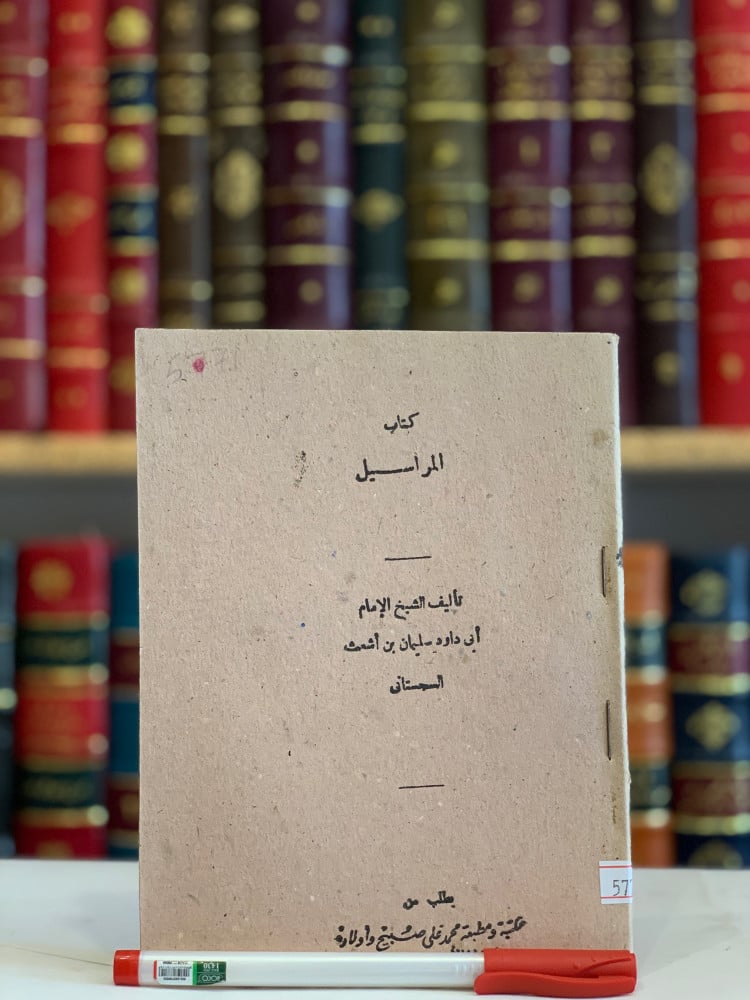 كتاب
المراسيل
تأليف الشيخ الإمام
أبى داود سليمان بن أشعث
السجستانى
يطلب من
مكتبة ومطبعة محمد على صبيح وأولاده
57